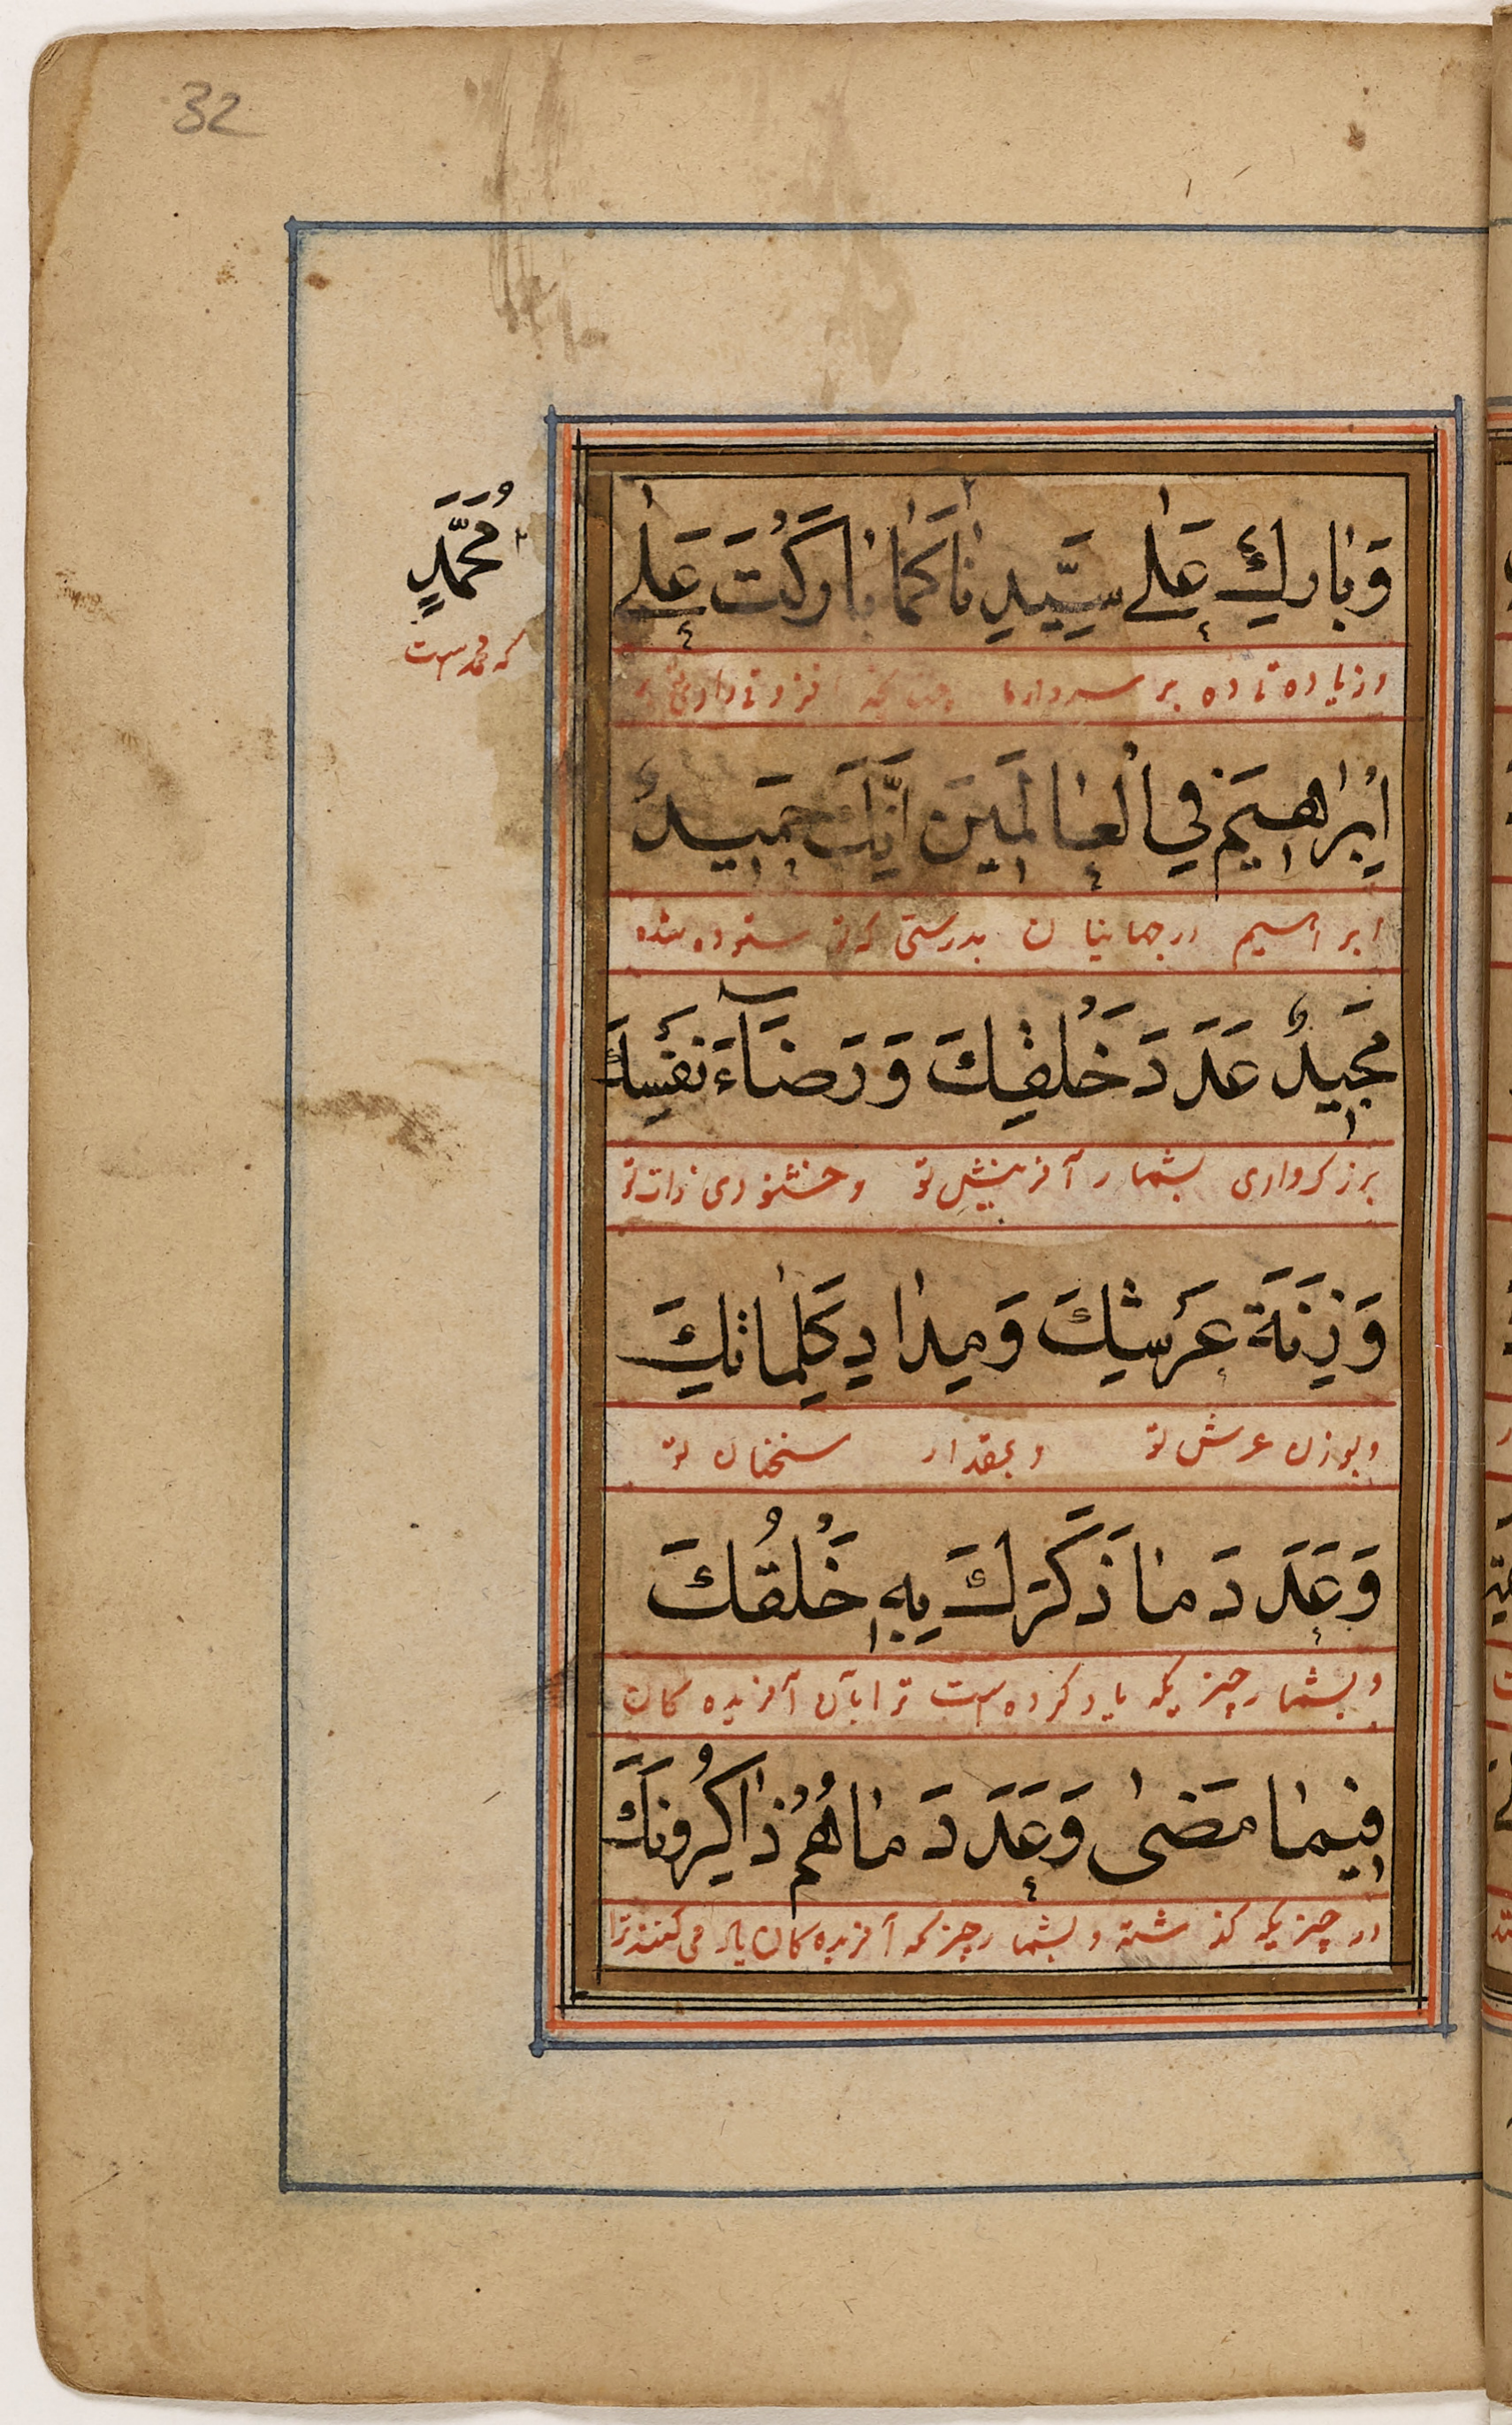 32
وَبَارِكْ عَلٰى سَيِّدِنَا كَمَا بَارَكْتَ عَلٰى
مُحَمَّدٍ
که محمد است
وزیاده تی ده بر سردار ما چنانکه افزونی دادی
اِبْرَاهِيمَ فِي الْعَالَمِينَ اِنَّكَ حَمِيدٌ
ابراهیم در جهانیان بدرستی که تو ستوده شده
مَجِيدٌ عَدَدَ خَلْقِكَ وَرَضَآءَ نَفْسِكَ
بزرکواری بشمار آفرینش تو وخشنودی ذات تو
وَزِنَةَ عَرْشِكَ وَمِدَادِ كَلِمَاتِكَ
وبوزن عرش تو وبمقدار سخنان تو
وَعَدَدَ مَا ذَكَرَكَ بِهِ خَلْقُكَ
وبشمار چیزیکه یاد کرده است ترا بآن آفریده کان
فِيمَا مَضٰى وَعَدَدَ مَا هُمْ ذَاكِرُونَكَ
در چیزیکه کذشته وبشمار چیز که آفریده کان یاد می کنند ترا